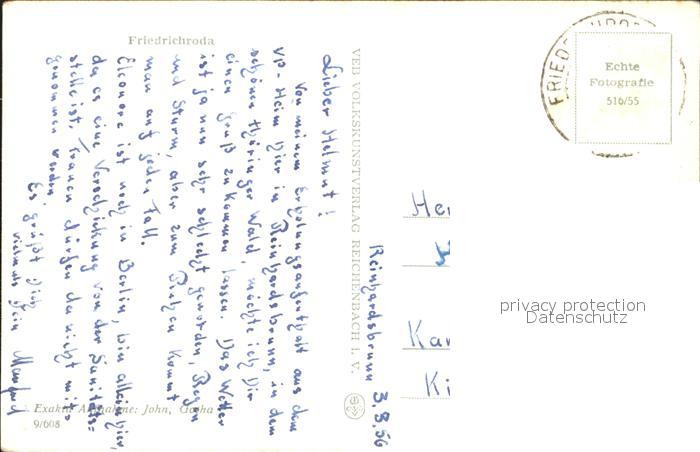 Friedrichroda
Lieber Helmut!
Von meinem Erholungsaufenthalt aus dem
VP-Heim hier in Reinhardsbrunn, in dem
schönen Thüringer Wald, möchte ich Dir
einen Gruß zukommen lassen. Das Wetter
ist ja nun sehr schlecht geworden, Regen
und Sturm, aber zum Ruhen kommt
man auf jeden Fall.
Eleonore ist noch in Berlin, bin allein hier,
da es eine Verschickung von der Sanitäts=
stelle ist, Frauen dürfen da nicht mit=
genommen werden.
Es grüßt Dich
vielmals Dein Manfred
Exakta Aufnahme: John, Gotha
9/608
VEB VOLKSKUNSTVERLAG REICHENBACH I. V.
Reinhardsbrunn 3.8.56
FRIED
Echte
Fotografie
516/55
Her
Kar
Ki
privacy protection
Datenschutz